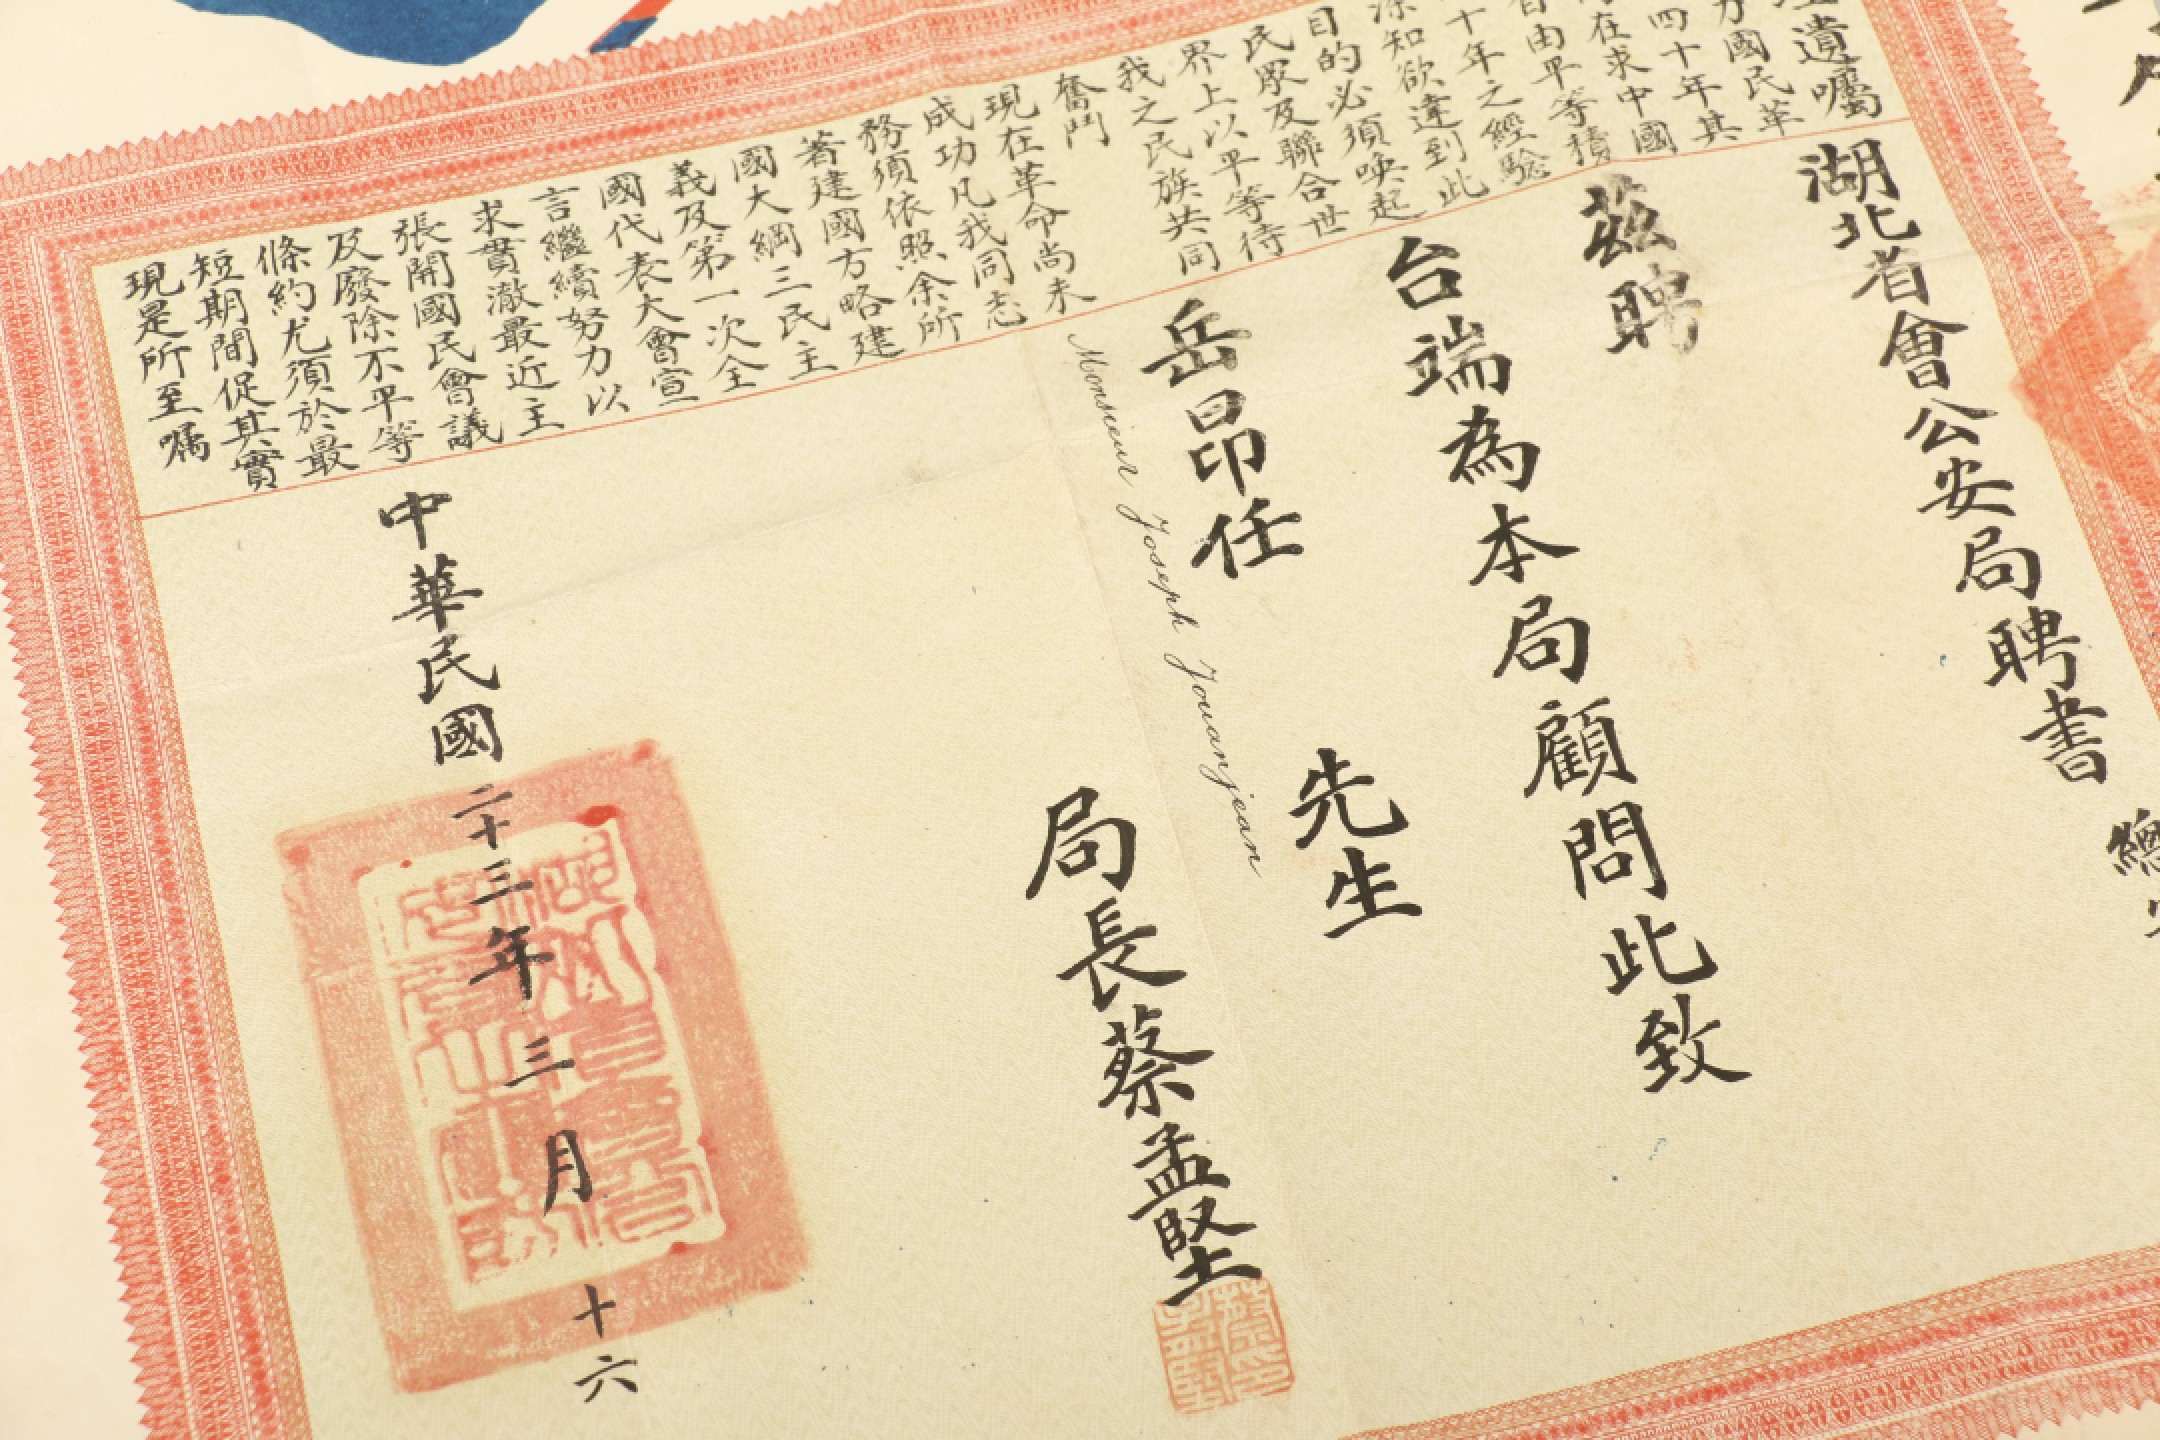 遺囑
力國民革
四十年其
在求中國
自由平等積
十年之經驗
深知欲達到此
目的必須喚起
民眾及聯合世
界上以平等待
我之民族共同
奮鬥
現在革命尚未
成功凡我同志
務須依照余所
著建國方略建
國大綱三民主
義及第一次全
國代表大會宣
言繼續努力以
求貫澈最近主
張開國民會議
及廢除不平等
條約尤須於最
短期間促其實
現是所至囑
湖北省會公安局聘書
茲聘
台端為本局顧問此致
岳昂任 先生
Monsieur Joseph Jouanjean
局長蔡孟堅
蔡孟堅印
中華民國二十三年三月十六
總